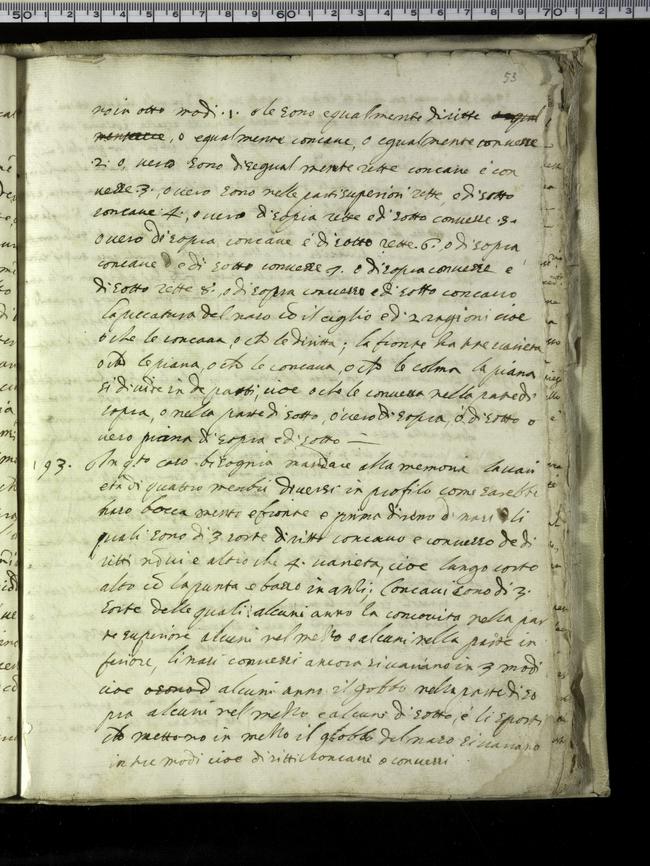 53
no in otto modi .1. o le sono equalmente diritte
o equalmente concave, o equalmente convesse
2: o, vero sono disequal mente rette concave e con
vesse 3., o vero sono nelle parti superiori rette, e di sotto
concave 4., o vero di sopra rette e di sotto convesse .5.
o vero di sopra concave e di sotto rette .6. o di sopra
concave e di sotto convesse 7. o di sopra convesse e
di sotto rette 8. o di sopra convesso e di sotto concavo
la piccatura del naso cō il ciglio e di 2 ragioni cioe
o che le concava, o ch le diritta; la fronte ha tre varieta
o ch le piana, o ch le concava, o ch le colma la piana
si divide in parti, cioe o che le convessa nella parte di
sopra, o nella parte di sotto, o vero di sopra, e di sotto o
vero piana di sopra e di sotto
193. In qto caso bisognia mandare alla memoria la vari
età di quattro membri diversi in profilo come sarebbe
naso bocca mento e fronte e prima di nasi li
quali sono di 3 sorte diritto concavo e convesso de di
ritti altro che 4. varieta, cioe lungo corto
alto cō la punta e basso concavi sono di 3.
sorte delle quali alcuni anno la concavita nella par
te superiore alcuni nel mezzo e alcuni nella parte in
feriore, li nasi convessi ancora si variano in 3 modi
cioe alcuni anno il gobbo nella parte di so
pra alcuni nel mezzo e alcuni di sotto, e li sporti
ch mettono in mezzo il gobbo del naso si variano
in tre modi cioe diritti concavi o convessi